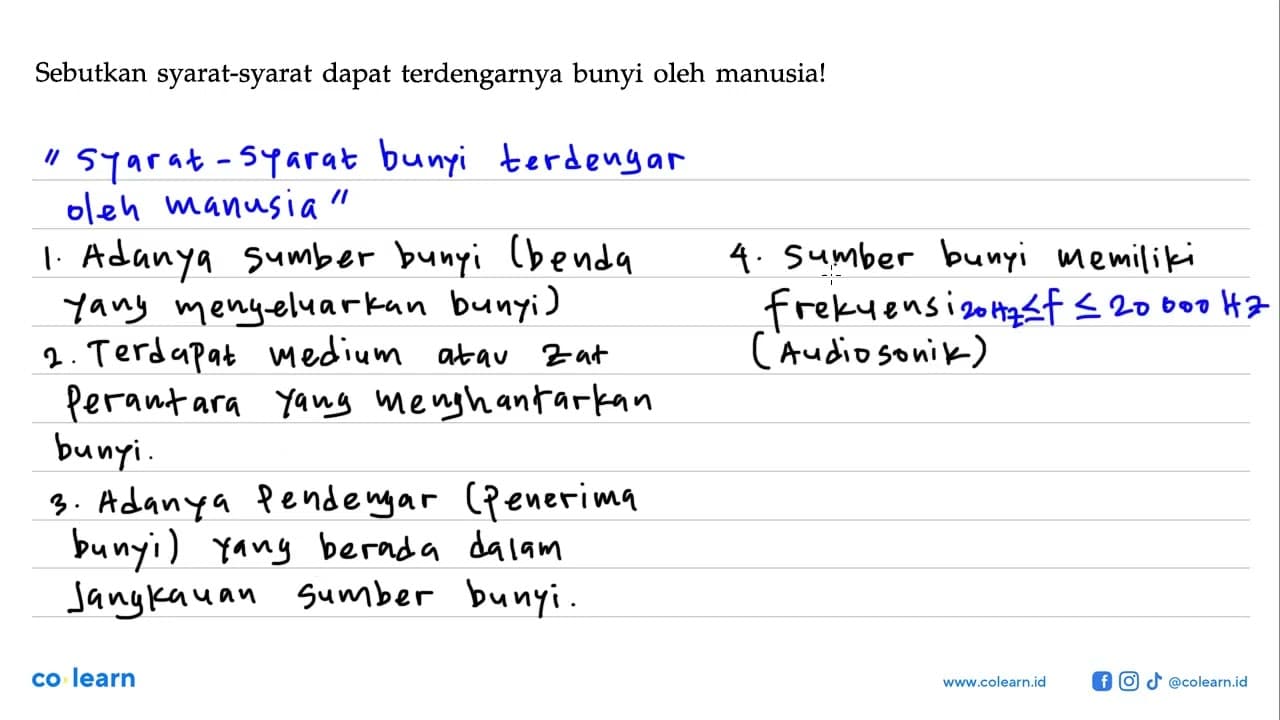 Sebutkan syarat-syarat dapat terdengarnya bunyi oleh manusia!
"Syarat-syarat bunyi terdengar
oleh manusia"
1. Adanya sumber bunyi (benda
yang mengeluarkan bunyi)
2. Terdapat medium atau zat
Perantara yang menghantarkan
bunyi.
3. Adanya Pendengar (Penerima
bunyi) yang berada dalam
Jangkauan sumber bunyi.
4. Sumber bunyi memiliki
frekuensi 20 Hz ≤ f ≤ 20 000 Hz
(Audiosonik)
co learn
www.colearn.id
@colearn.id